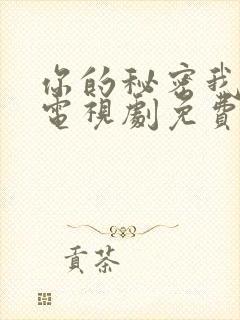 你的秘密我
電視劇免費
貢茶